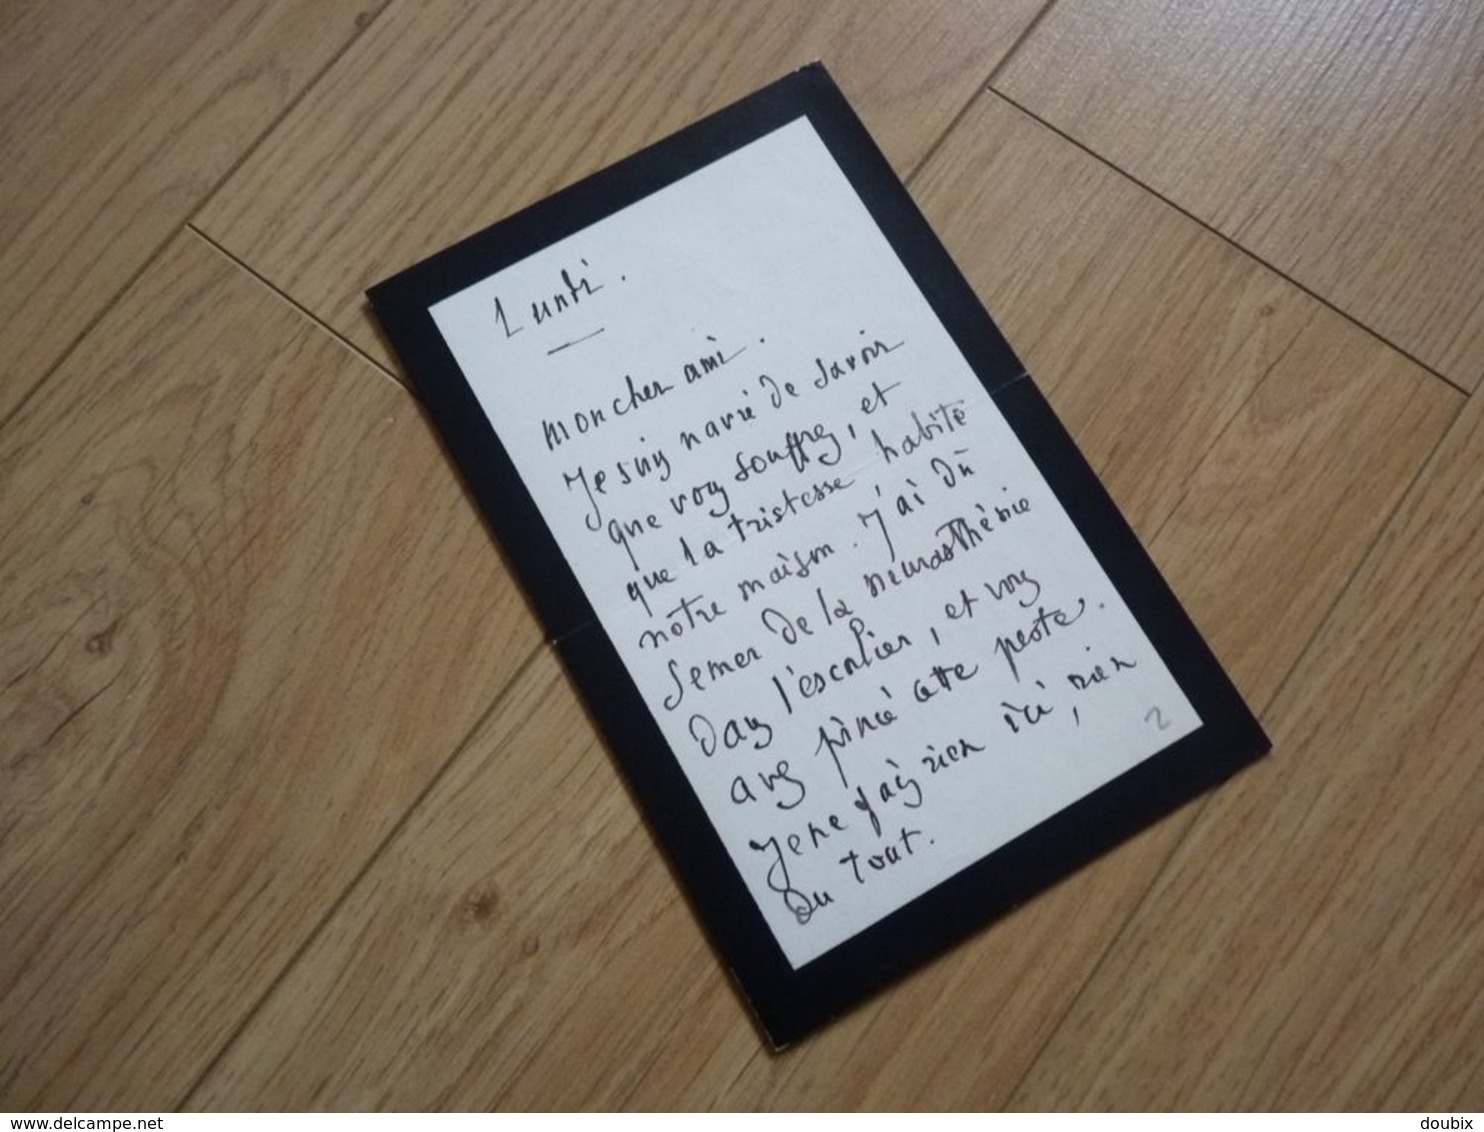 Lundi.
Mon cher ami.
Je suis navré de savoir
que vous souffrez, et
que la tristesse habite
notre maison. J'ai dû
semer de la neurasthénie
dans l'escalier, et vous
avez pincé cette peste.
Je ne fais rien ici, rien
du tout.
2
delcampe.net
doubix